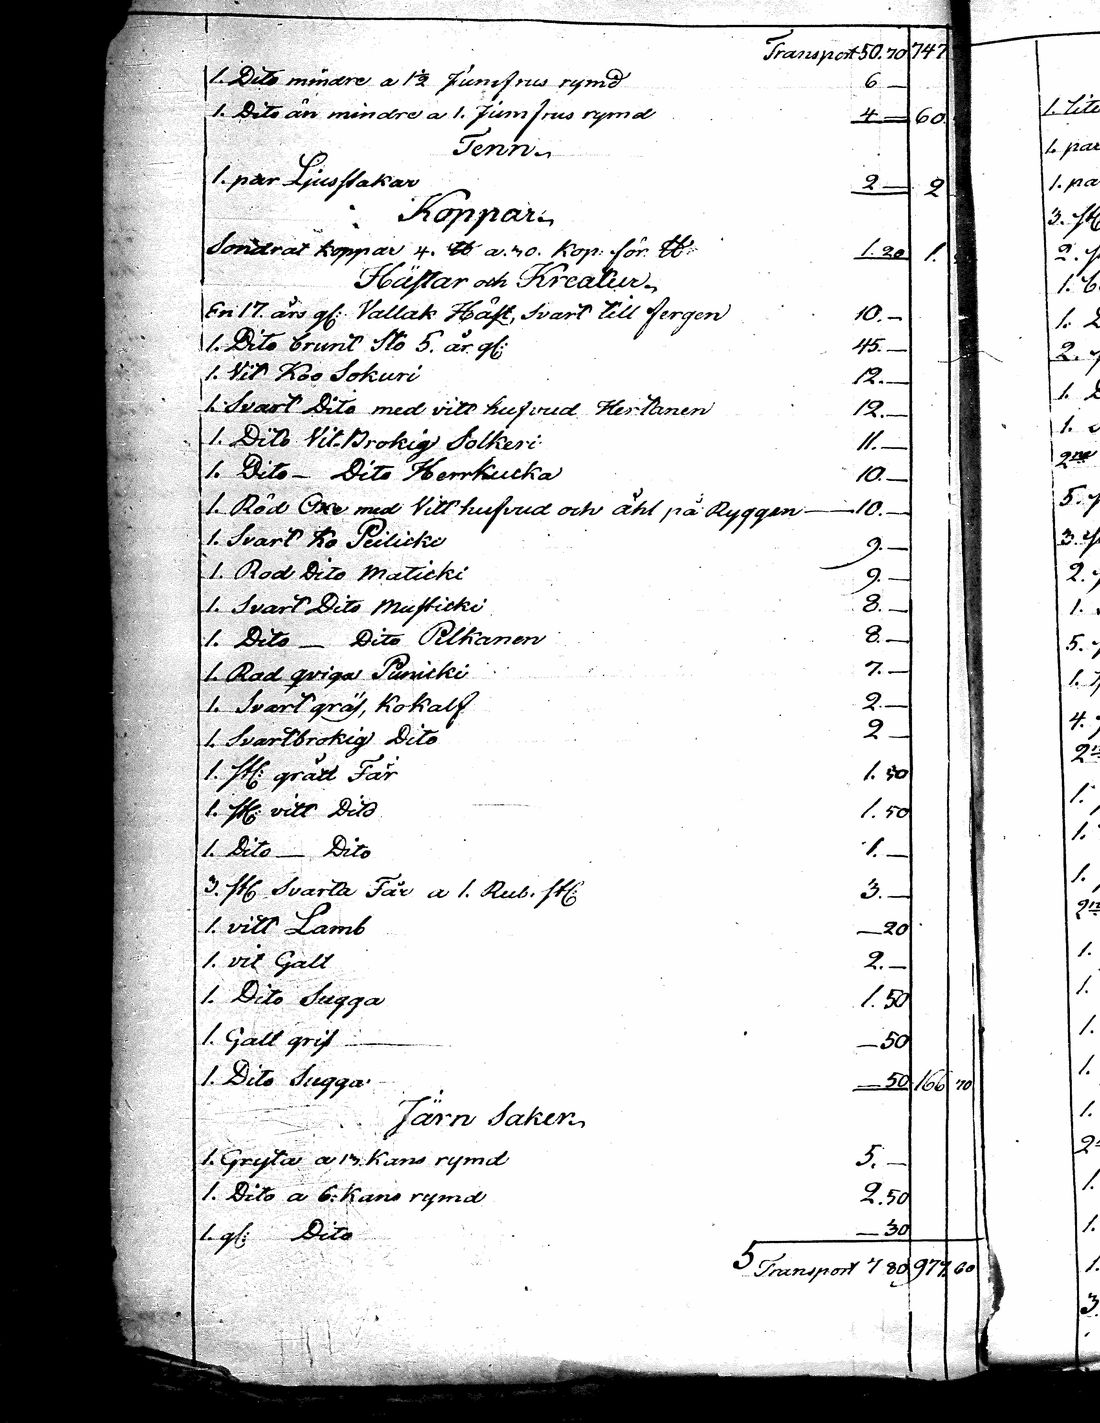 Transport 50.70 747
1. Dito mindre a 1½ Jumfrus rymd 6 —
1. Dito än mindre a 1. Jumfrus rymd 4 — 60
Tenn
1. par Ljusstakar 2 — 2
Koppar
Söndrat koppar 4. ℔ a 30. Kop: för ℔ 1.20 1.
Hästar och Kreatur
En 17. års gl: Vallak Häst, svart till fergen 10. —
1. Dito brunt Sto 5. år gl: 45. —
1. Vit Koo Sokuri 12. —
1. Svart Dito med vitt hufvud Hertanen 12. —
1. Dito Vit-Brokig Solkeri 11. —
1. Dito — Dito Herrkucka 10. —
1. Röd Oxe med Vitt hufvud och åhl på Ryggen — 10. —
1. Svart Ko Peilicki 9. —
1. Röd Dito Maticki 9. —
1. Svart Dito Musticki 8. —
1. Dito — Dito Pilkanen 8. —
1. Röd qviga Punicki 7. —
1. Svart gräs, Ko kalf 2. —
1. Svartbrokig Dito 2 —
1. st: grått Får 1.50
1. st: vitt Dito 1.50
1. Dito — Dito 1. —
3. st Svarta Får a 1. Rub. st: 3. —
1. vitt Lamb — 20
1. vit Galt 2. —
1. Dito Sugga 1.50
1. Galt gris — 50
1. Dito Sugga — 50 166 70
Järn Saker
1. Gryta a 13. Kans rymd 5. —
1. Dito a 6. Kans rymd 2.50
1. gl: Dito — 30
5 Transport 7 80 977 60
1. par
1. pa
3. st
1. D
1. D
2ne
5.
3.
2.
1.
5.
1.
4.
1.
1.
1.
1.
1.
1.
1.
1.
1.
1.
1.
3.